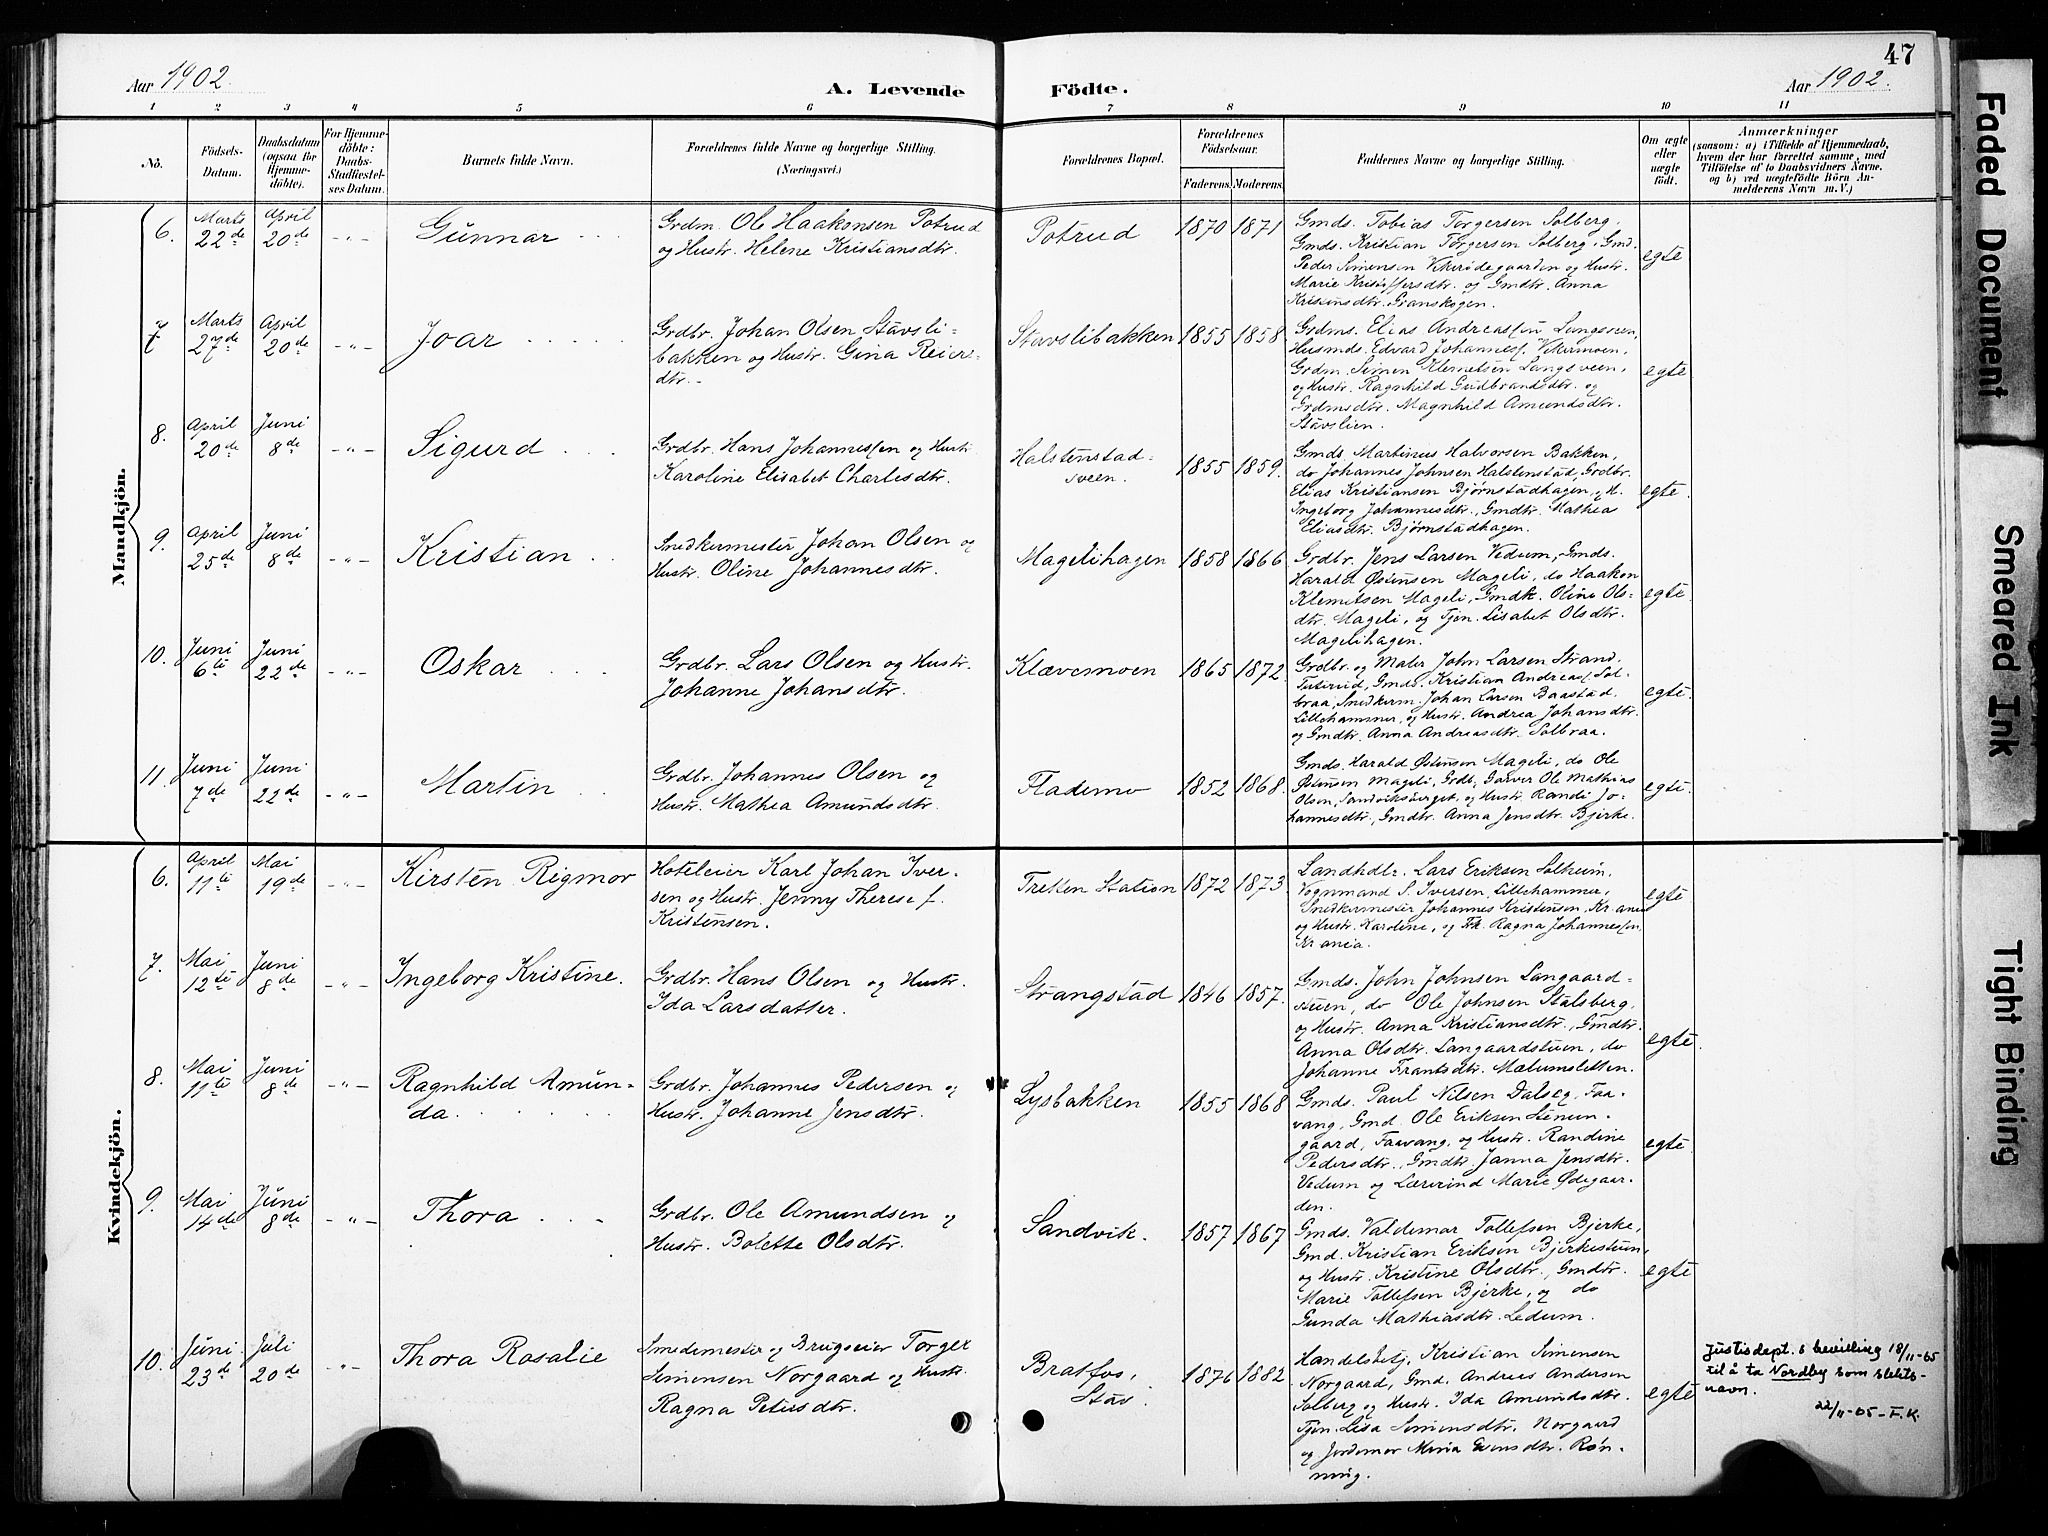 47
Aar 1902.
A. Levende Födte.
Aar 1902.
1 2 3 4 5 6 7 8 9 10 11
No.
Födsels-
Datum.
Daabsdatum
(ogsaa for
Hjemme-
döbte).
For Hjemme-
döbte:
Daabs-
Stadfæstel-
ses Datum.
Barnets fulde Navn.
Forældrenes fulde Navne og borgerlige Stilling.
(Næringsvei.)
Forældrenes Bopæl.
Forældrenes
Födselsaar.
Faderens.
Moderens.
Faddernes Navne og borgerlige Stilling.
Om ægte
eller
uægte
födt.
Anmærkninger
(saasom: a) i Tilfælde af Hjemmedaab,
hvem der har forrettet samme, med
Tilföielse af to Daabsvidners Navne,
og b) ved uægtefödte Börn An-
melderens Navn m. V.)
Mandkjön.
6. Marts 22de April 20de -"- Gunnar
Grdm. Ole Haakonsen Potrud
og Hustr. Helene Kristiansdtr.
Potrud 1870 1871
Gmds. Tobias Torgersen Solberg.
Gmds. Kristian Torgersen Solberg, Gmd.
Peder Simensen Vikerødegaarden og Hustr.
Marie Kristoffersdtr. og Gmdtr. Anna
Granskogen.
egte
7 Marts 27de April 20de -"- Joar
Grdbr. Johan Olsen Stavsli-
bakken og Hustr. Gina Reiers-
dtr.
Stavslibakken 1855 1858
Grdms. Elias Andreassen Langsveen,
Husmds. Edvard Johanness. Vikermoen,
Grdm. Simen Klemetsen Langsveen,
og Hustr. Ragnhild Gudbrandsdtr. og
Grdmsdtr. Magnhild Amundsdtr.
Stavslien.
egte
8. April 20de Juni 8de -"- Sigurd
Grdbr. Hans Johannessen og Hustr.
Karoline Elisabet Charlesdtr.
Halstenstad-
sveen. 1855 1859.
Gmds. Martinus Halvorsen Bakken,
do Johannes Johnsen Halstenstad, Grdbr.
Elias Kristiansen Bjørnstadhagen, og H.
Ingeborg Johannesdtr., Gmdtr. Mathea
Eliasdtr. Bjørnstadhagen.
egte.
9. April 25de Juni 8de -"- Kristian
Snedkermester Johan Olsen og
Hustr. Oline Johannesdtr.
Magelihagen 1858 1866
Grdbr. Jens Larsen Vedum, Gmds.
Harald Østensen Mageli, do Haakon
Klemetsen Mageli, Gmdk. Oline Ols-
dtr. Mageli, og Tjen. Lisabet Olsdtr.
Magelihagen.
egte.
10. Juni 6te Juni 22de -"- Oskar
Grdbr. Lars Olsen og Hustr.
Johanne Johansdtr.
Klævemoen 1865 1872.
Grdbr. og Maler John Larsen Strand
Gmds. Kristian Andreass. Sol-
braa, Snedkerm. Johan Larsen Baastad
Lillehammer, og Hustr. Andrea Johansdtr.
og Gmdtr. Anna Andreasdtr. Solbraa.
egte.
11. Juni 7de Juni 22de -"- Martin
Grdbr. Johannes Olsen og
Hustr. Mathea Amundsdtr.
Flademo 1852 1868.
Gmds. Harald Østensen Mageli, do Ole
Østensen Mageli, Grdb, Garver Ole Mathias
Olsen, Sandviksberget, og Hustr. Randi Jo-
hannesdtr., Gmdtr. Anna Jensdtr. Bjerke.
egte.
Kvindekjön.
6. April 11te Mai 19de -"- Kirsten Rigmor
Hoteleier Karl Johan Iver-
sen og Hustr. Jenny Therese f.
Kristensen.
Tretten Station 1872 1873
Landhdlr. Lars Eriksen Solheim,
Vognmand S. Iversen, Lillehammer,
Snedkermester Johannes Kristensen, Kr.ania
og Hustr. Karoline, og Frk. Ragna Johannessen
Kr.ania.
egte
7. Mai 12te Juni 8de -"- Ingeborg Kristine.
Grdbr. Hans Olsen og Hustr.
Ida Larsdatter.
Strangstad 1846 1857.
Gmds. John Johnsen Langaard-
stuen, do Ole Johnsen Stalsberg,
og Hustr. Anna Kristiansdtr., Gmdtr.
Anna Olsdtr. Langaardstuen, do
Johanne Frantsdtr. Mælumsletten.
egte.
8. Mai 11te Juni 8de -"- Ragnhild Amun-
da.
Grdbr. Johannes Pedersen og
Hustr. Johanne Jensdtr.
Lysbakken 1855 1868
Gmds. Paul Nilsen Dalseg, Faa-
vang, Gmd. Ole Eriksen Stenun-
gaard, Faavang, og Hustr. Randine
Pedersdtr., Gmdtr. Janna Jensdtr.
Vedum og Lærerind Marie Ødegaar-
den.
egte.
9. Mai 14de Juni 8de -"- Thora
Grdbr. Ole Amundsen og
Hustr. Bolette Olsdtr.
Sandvik. 1857 1867
Gmds. Valdemar Tollefsen Bjerke,
Gmd. Kristian Eriksen Bjerkestuen,
og Hustr. Kristine Olsdtr., Gmdtr.
Marie Tollefsen Bjerke, og do
Gunda Mathiasdtr. Ledum.
egte
10. Juni 23de Juli 20de -"- Thora Rosalie
Smedemester og Brugseier Torger
Simensen Norgaard og Hustr.
Ragna Petersdtr.
Bratfos,
Stav 1876 1882
Handelsbetj. Kristian Simensen
Norgaard, Gmd. Andreas Andersen
Solberg og Hustr. Ida Amundsdtr.
Tjen. Lisa Simensdtr. Norgaard
og Jordemor Maria Evensdtr. Røn-
ning.
egte
Justisdept.s bevilling 18/11-05
til å ta Nordby som slekts-
navn.
22/11-05-F.K.
Faded Document
Smeared Ink
Tight Binding